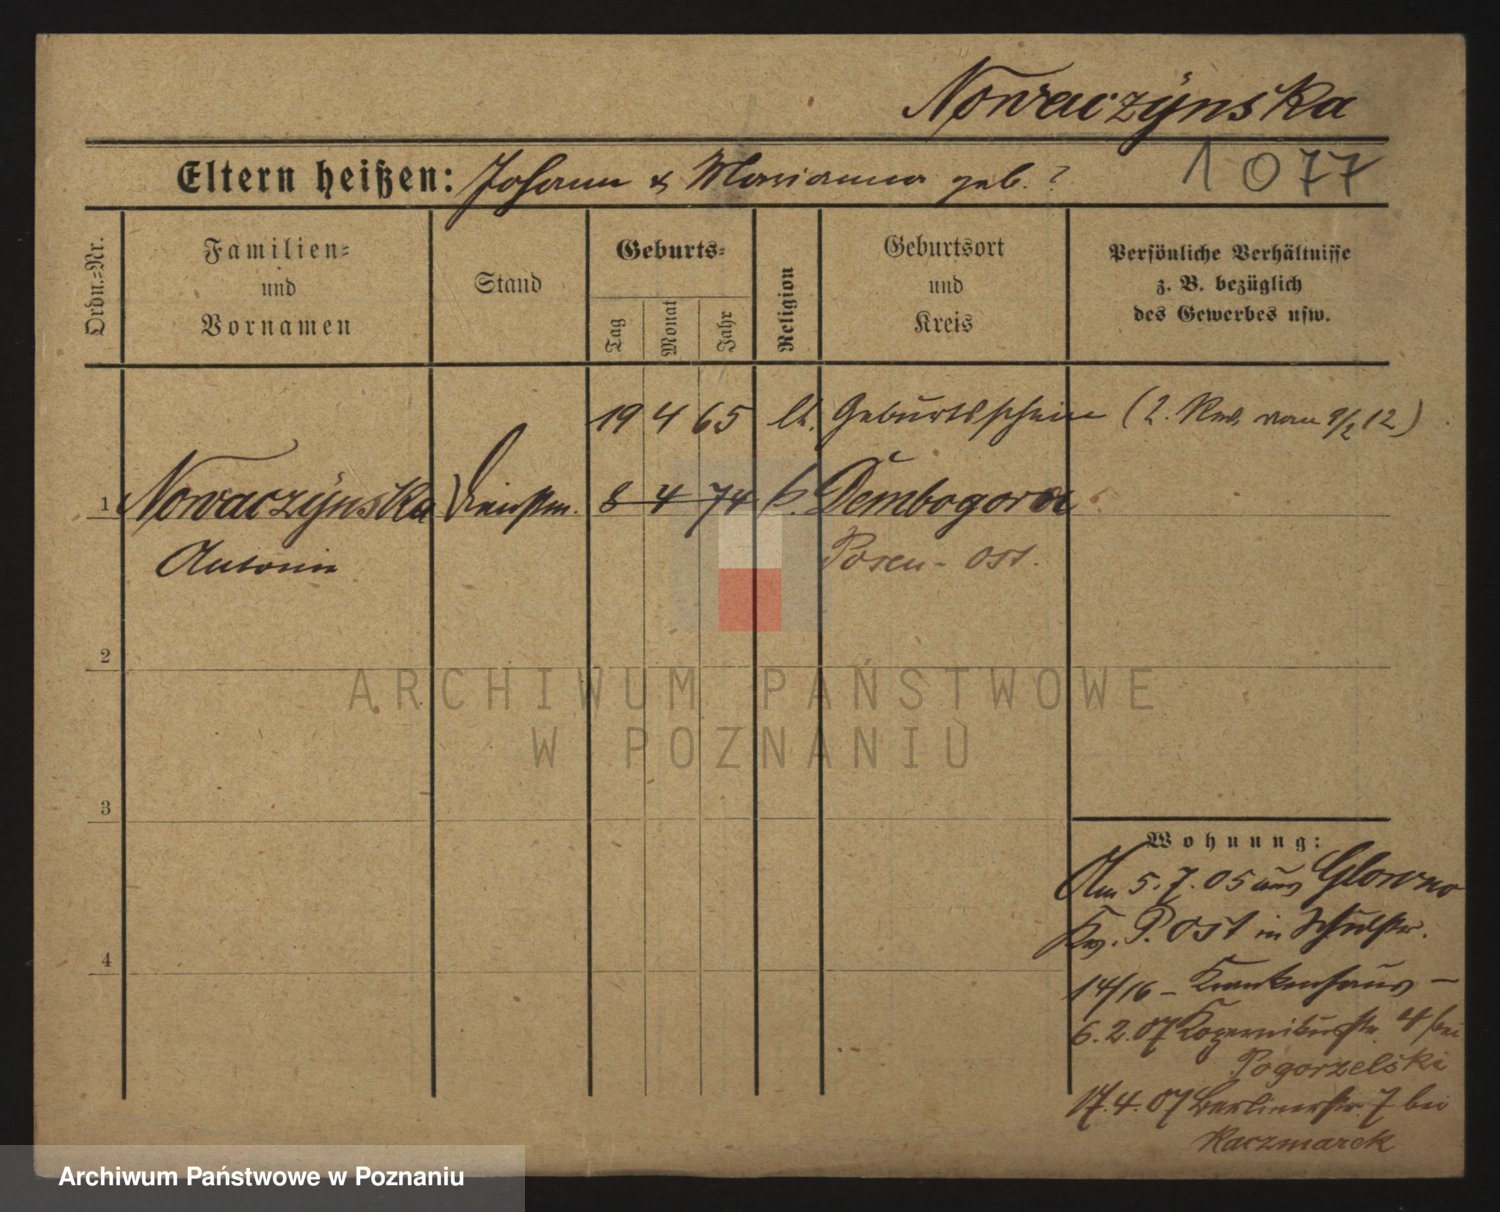 Nowaczÿnska
Eltern heißen: Johann & Marianna geb. ?
1077
Ordn.-Nr.
Familien-
und
Vornamen
Stand
Geburts-
Tag
Monat
Jahr
Religion
Geburtsort
und
Kreis
Persönliche Verhältnisse
z. B. bezüglich
des Gewerbes usw.
19 4 65 lt. Geburtsschein (2. Rev. vom 9/2 12)
1 Nowaczÿnska Dienstm. 8 4 74 k. Dembogora
Antonin Posen-Ost.
2
3
4
ARCHIWUM PAŃSTWOWE
W POZNANIU
Wohnung:
Am 5.7.05 aus Glowno
Kr. P. Ost in Schulstr.
14/16 - Krankenhaus -
6.2.07 Kopernikusstr. 4 bei
Pogorzelski
17.4.07 Berlinerstr. 7 bei
Kaczmarek
Archiwum Państwowe w Poznaniu